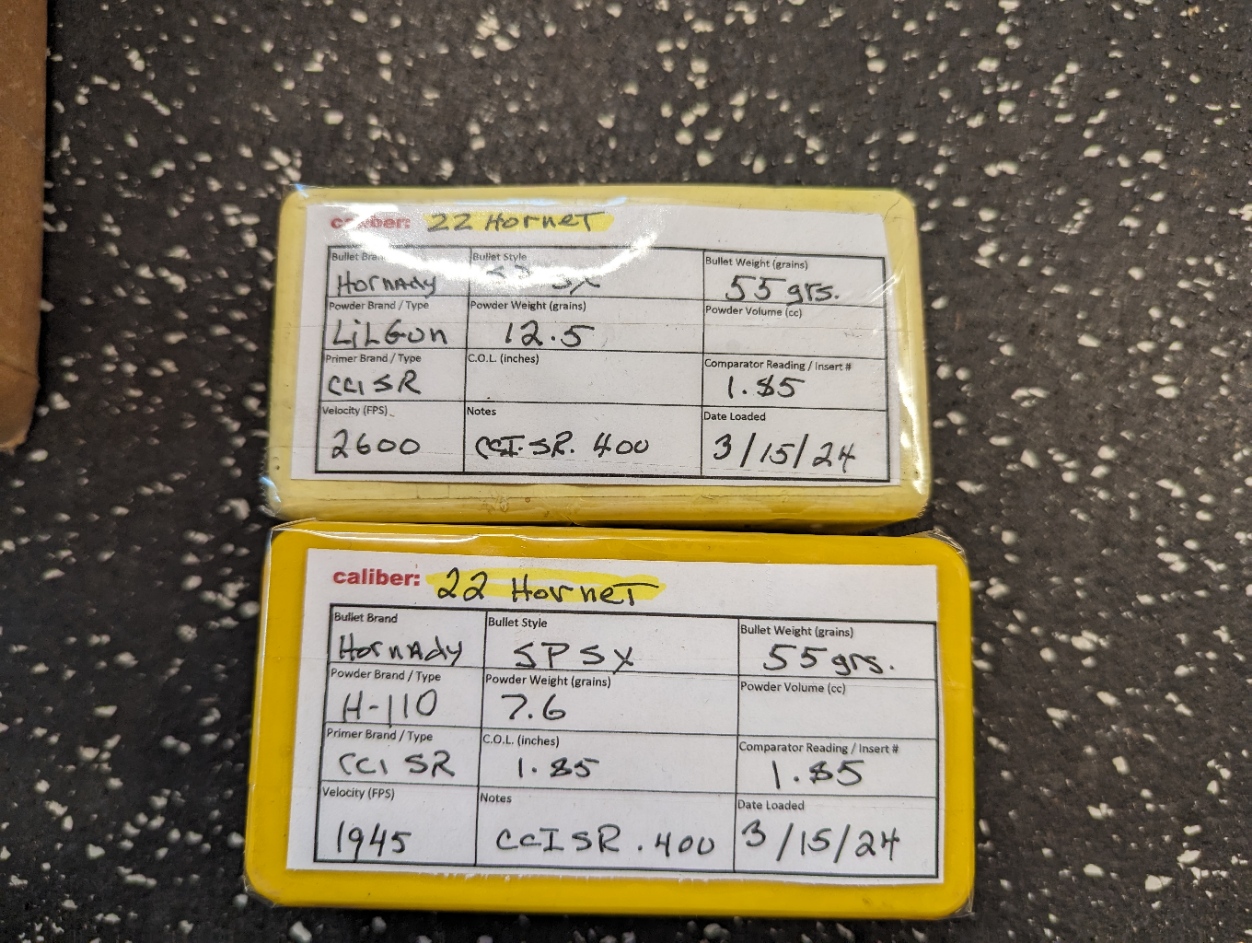 caliber: 22 Hornet
Bullet Brand Bullet Style Bullet Weight (grains)
Hornady SX 55 grs.
Powder Brand / Type Powder Weight (grains) Powder Volume (cc)
LiLGun 12.5
Primer Brand / Type C.O.L. (inches) Comparator Reading / Insert #
CCI SR 1.85
Velocity (FPS) Notes Date Loaded
2600 CCI. SR. 400 3/15/24
caliber: 22 Hornet
Bullet Brand Bullet Style Bullet Weight (grains)
Hornady SPSX 55 grs.
Powder Brand / Type Powder Weight (grains) Powder Volume (cc)
H-110 7.6
Primer Brand / Type C.O.L. (inches) Comparator Reading / Insert #
CCI SR 1.85 1.85
Velocity (FPS) Notes Date Loaded
1945 CCI SR . 400 3/15/24